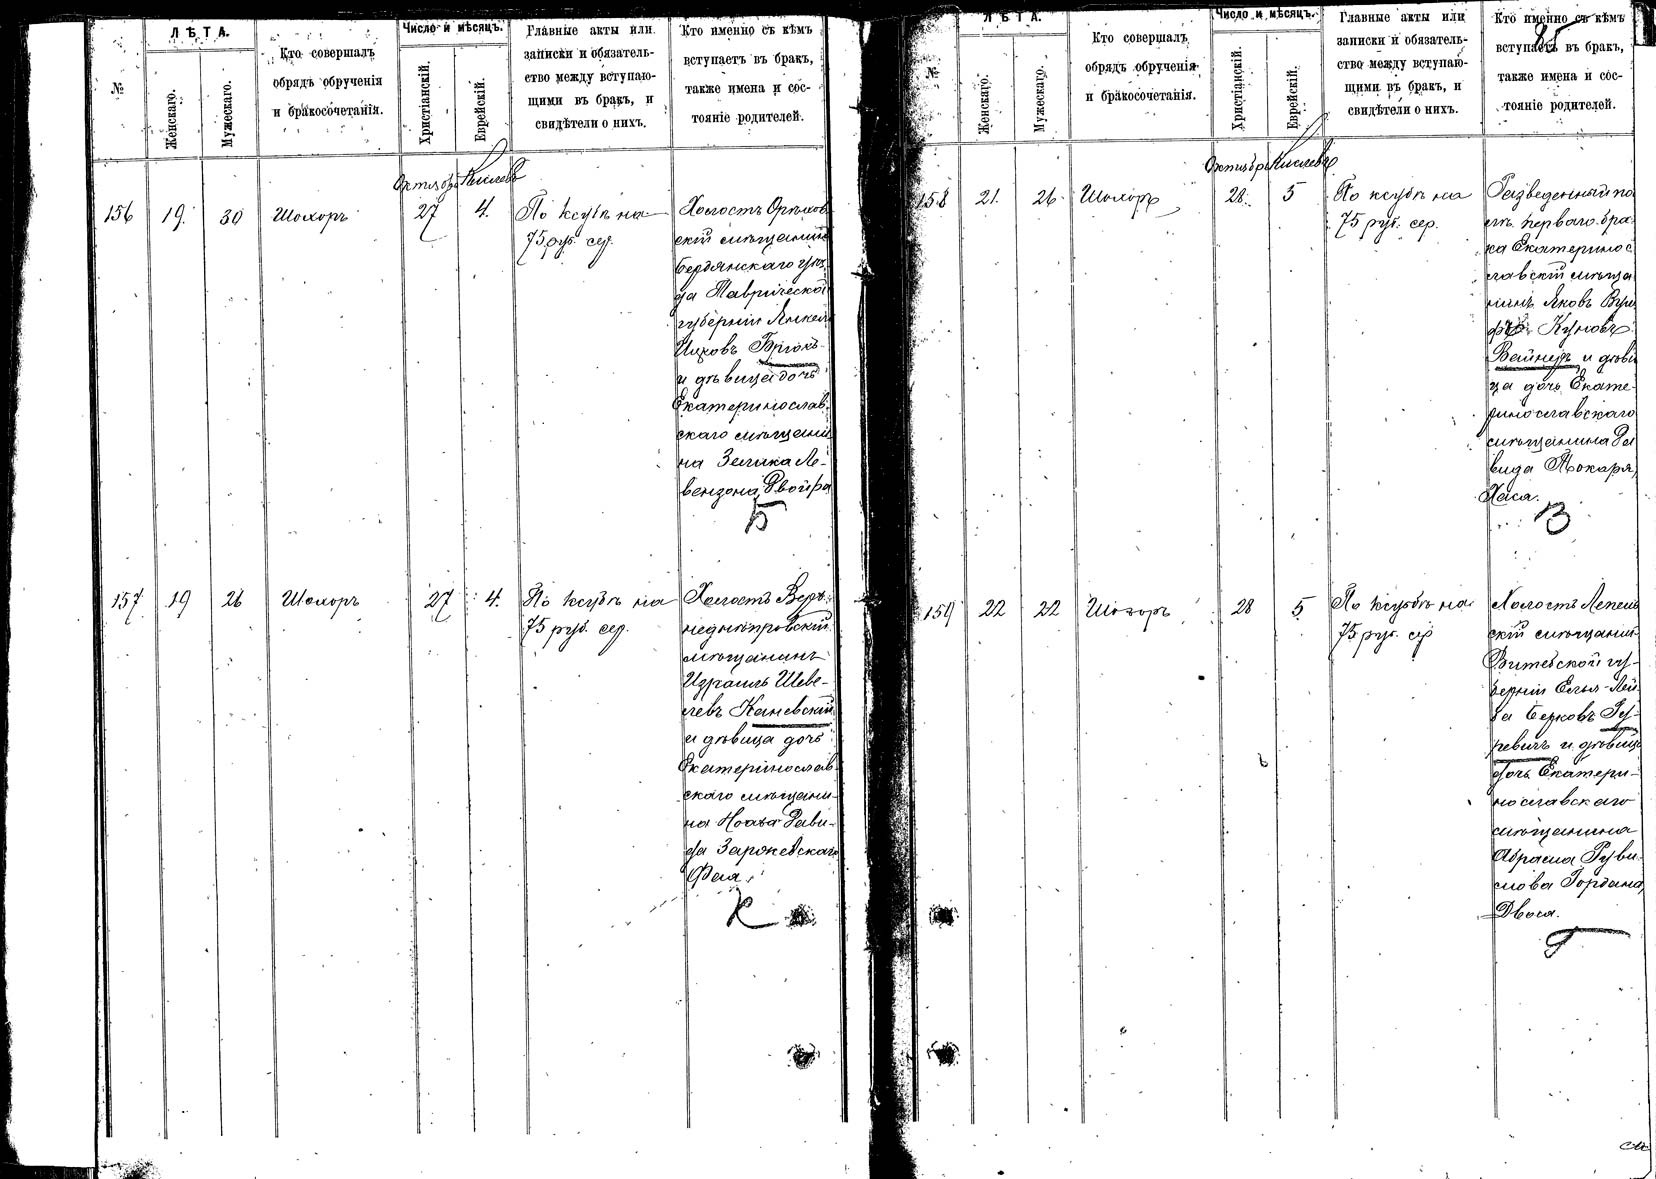 №
ЛѢТА.
Женскаго.
Мужескаго.
Кто совершалъ
обрядъ обрученія
и бракосочетанія.
Число и мѣсяцъ.
Христіанскій.
Еврейскій.
Главные акты или
записки и обязатель-
ство между вступаю-
щими въ бракъ, и
свидѣтели о нихъ.
Кто именно съ кѣмъ
вступаетъ въ бракъ,
также имена и сос-
тояніе родителей.
Октябрь Кислевъ
156 19. 30 Шохоръ 27 4.
По ксубѣ на
75 руб. сер.
Холостъ Орѣхов
скій мѣщанинъ
Бердянскаго уѣз
да Таврической
губерніи Янкель
Ицковъ Брюкъ
и дѣвица дочь
Екатеринослав
скаго мѣщани
на Зелика Ле-
вензона Двойра
Б
157 19 26 Шохоръ 27 4.
По ксубѣ на
75 руб. сер.
Холостъ Верх
неднѣпровскій
мѣщанинъ
Израиль Шеве-
левъ Каневскій
и дѣвица дочь
Екатеринослав
скаго мѣщани-
на Ноаха Дави-
да
Фея.
К
№
ЛѢТА.
Женскаго.
Мужескаго.
Кто совершалъ
обрядъ обрученія
и бракосочетанія.
Число и мѣсяцъ.
Христіанскій.
Еврейскій.
Главные акты или
записки и обязатель-
ство между вступаю-
щими въ бракъ, и
свидѣтели о нихъ.
Кто именно съ кѣмъ
вступаетъ въ бракъ,
также имена и сос-
тояніе родителей.
Октябрь Кислевъ
158 21. 26 Шохоръ 28. 5
По ксубѣ на
75 руб. сер.
Разведенный по
слѣ перваго бра
ка Екатеринос
лавскій мѣща
нинъ Яковъ Вуль
фъ Куновъ
Вайнеръ и дѣви
ца дочь Екате-
ринославскаго
мѣщанина Да
вида Токаря,
Хася.
В
159 22 22 Шохоръ 28 5
По ксубѣ на
75 руб. сер
Холостъ Лепель
скій мѣщанинъ
Витебской гу-
берніи Елья-Лей
ба Берковъ Гу-
ревичъ и дѣвица
дочь Екатери-
нославскаго
мѣщанина
Абрама Руви-
мова Гордана,
Двося.
Г